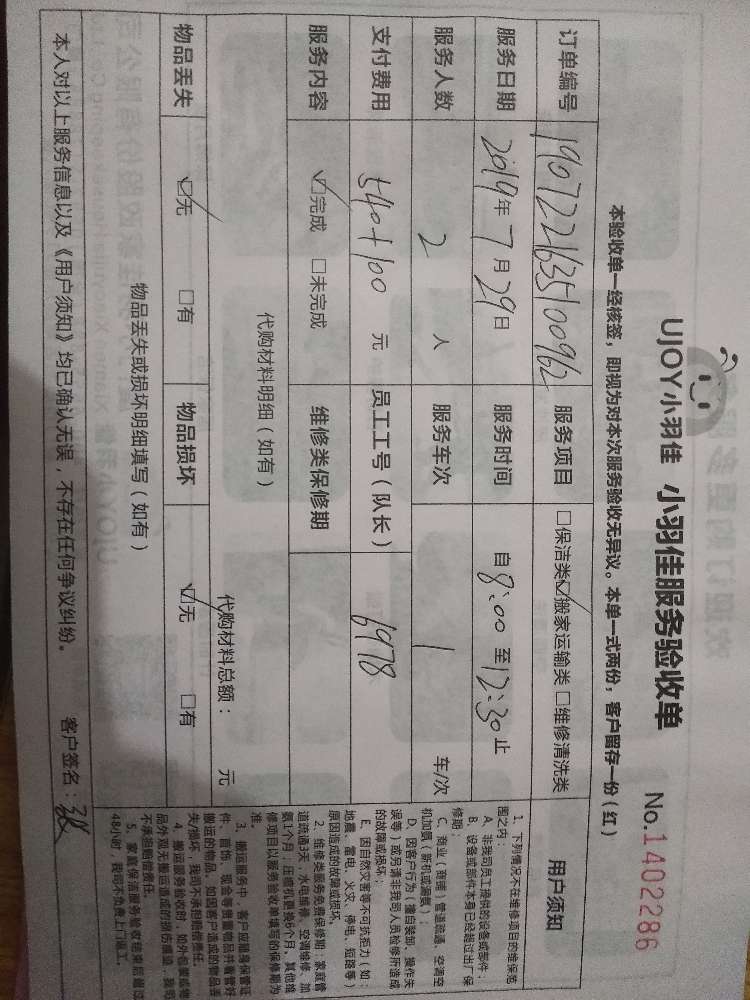 UJOY小羽佳 小羽佳服务验收单 No.1402286
本验收单一经核签，即视为对本次服务验收无异议。本单一式两份，客户留存一份（红）
订单编号 190722163510962 服务项目 □保洁类☑搬家运输类□维修清洗类
服务日期 2019年7月29日 服务时间 自8:00至12:30止
服务人数 2 人 服务车次 1 车/次
支付费用 540+100 元 员工工号（队长） 6978
服务内容 ☑完成 □未完成 维修类保修期
代购材料明细（如有） 代购材料总额： 元
物品丢失 ☑无 □有 物品损坏 ☑无 □有
物品丢失或损坏明细填写（如有）
本人对以上服务信息以及《用户须知》均已确认无误，不存在任何争议纠纷。 客户签名：
用户须知
1、下列情况不在维修项目的维保范
围之内：
A、非我司员工提供的设备或部件；
B、设备或部件本身已经超过出厂保
修期；
C、商业（商铺）管道疏通、空调空
机加氨（新机或漏氨）；
D、因客户行为（擅自装卸、操作失
误等）或另请非我司人员检修所造成
的故障或损坏；
E、因自然灾害等不可抗拒力（如：
地震、雷电、火灾、停电、短路等）
原因造成的故障或损坏。
2、维修类服务免费保修期：家庭管
道疏通3天，水电维修、空调维修、加
氨1个月；压缩机更换6个月，其他维
修项目以服务验收单填写的保修期为
准。
3、搬运服务中，客户应置身保管证
件、首饰、现金等贵重物品并看管好
搬运的物品，如因客户造成的物品丢
失/损坏，我司不承担赔偿责任。
4、搬运服务验收时，如外包装或物
品外观无搬运造成的损伤痕迹，我司
不承担赔偿责任。
5、家庭保洁服务验收结束后超过
48小时，我司不免费上门返工。